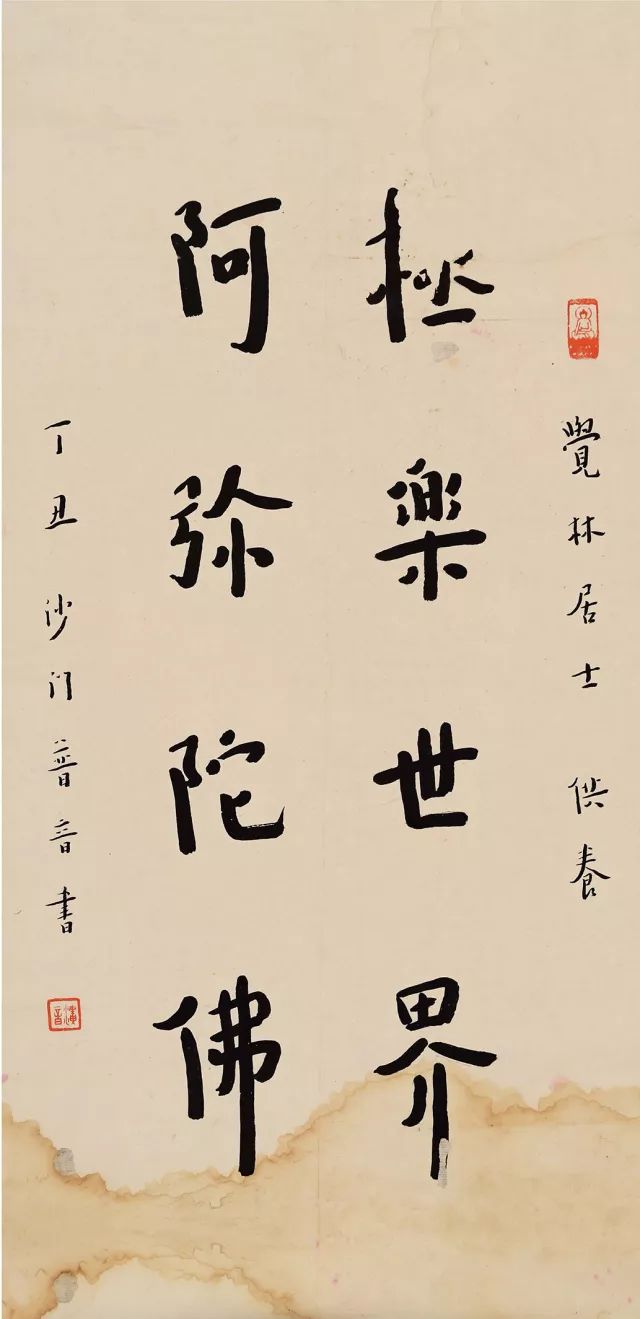 覺林居士 供養
極樂世界
阿弥陀佛
丁丑沙门普音書